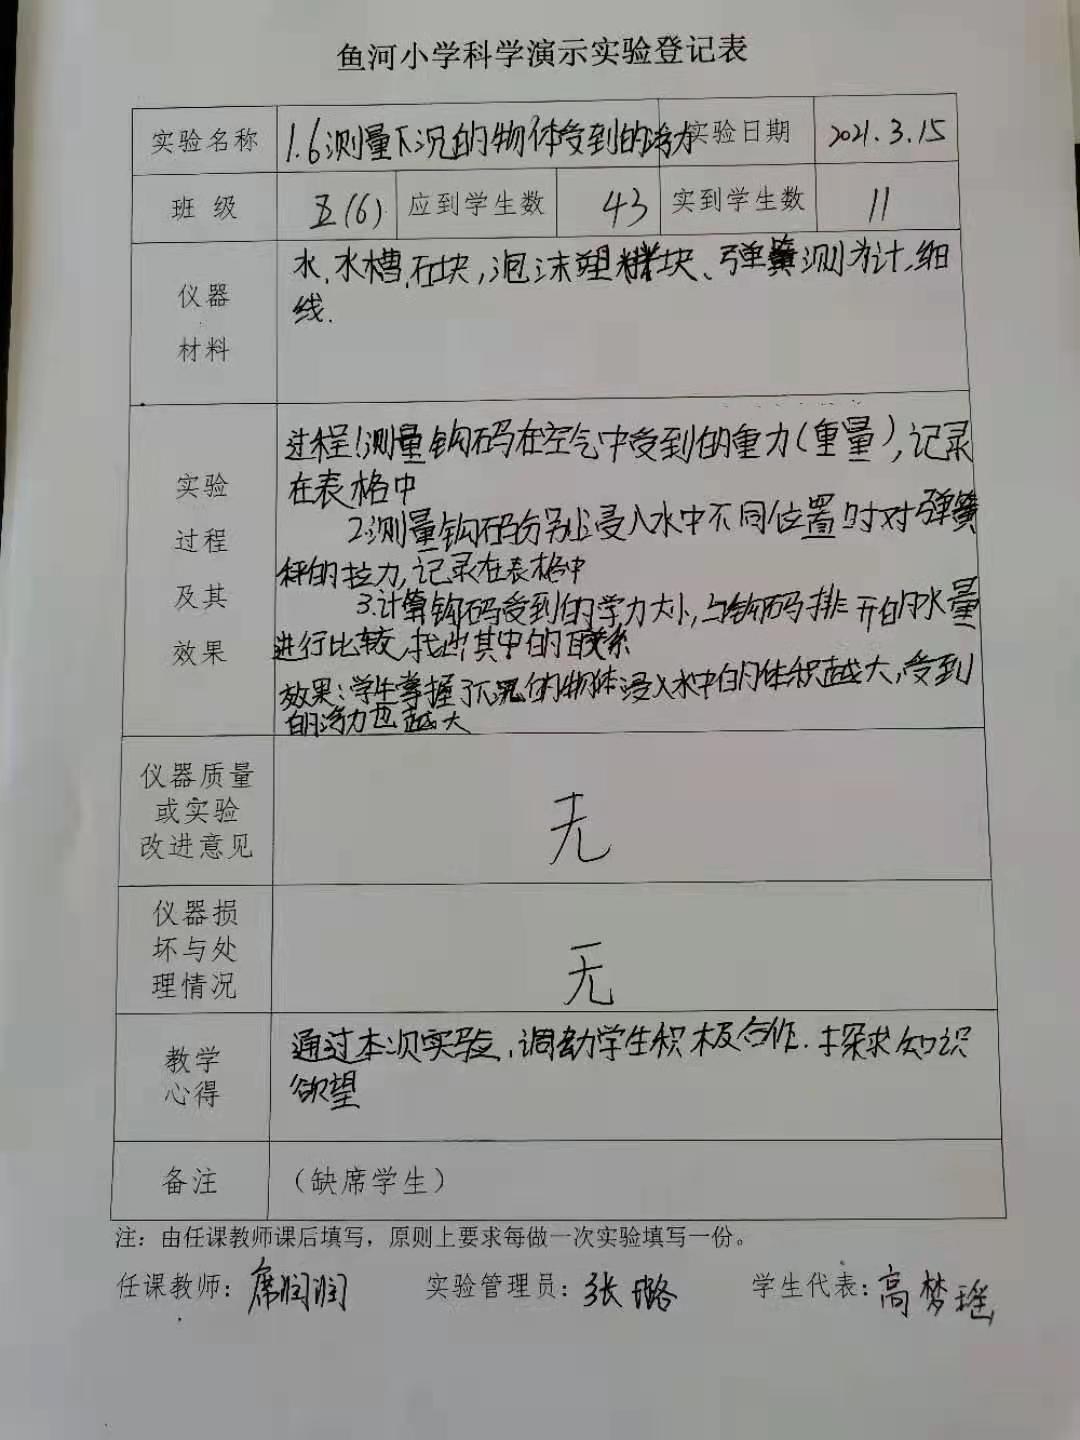 鱼河小学科学演示实验登记表
实验名称 1.6测量下沉的物体受到的浮力 实验日期 2021.3.15
班 级 五(6) 应到学生数 43 实到学生数 11
仪器
材料
水、水槽、石块，泡沫塑料块、弹簧测力计、细
线.
实验
过程
及其
效果
过程:1测量钩码在空气中受到的重力(重量),记录
在表格中
2.测量钩码分别浸入水中不同位置时对弹簧
秤的拉力,记录在表格中
3.计算钩码受到的浮力大小,与钩码排开的水量
进行比较,找出其中的联系
效果:学生掌握了下沉的物体浸入水中的体积越大,受到
的浮力也越大
仪器质量
或实验
改进意见
无
仪器损
坏与处
理情况
无
教学
心得
通过本次实验,调动学生积极合作.探求知识
欲望
备注 （缺席学生）
注：由任课教师课后填写，原则上要求每做一次实验填写一份。
任课教师：席润润 实验管理员：张璐 学生代表：高梦瑶